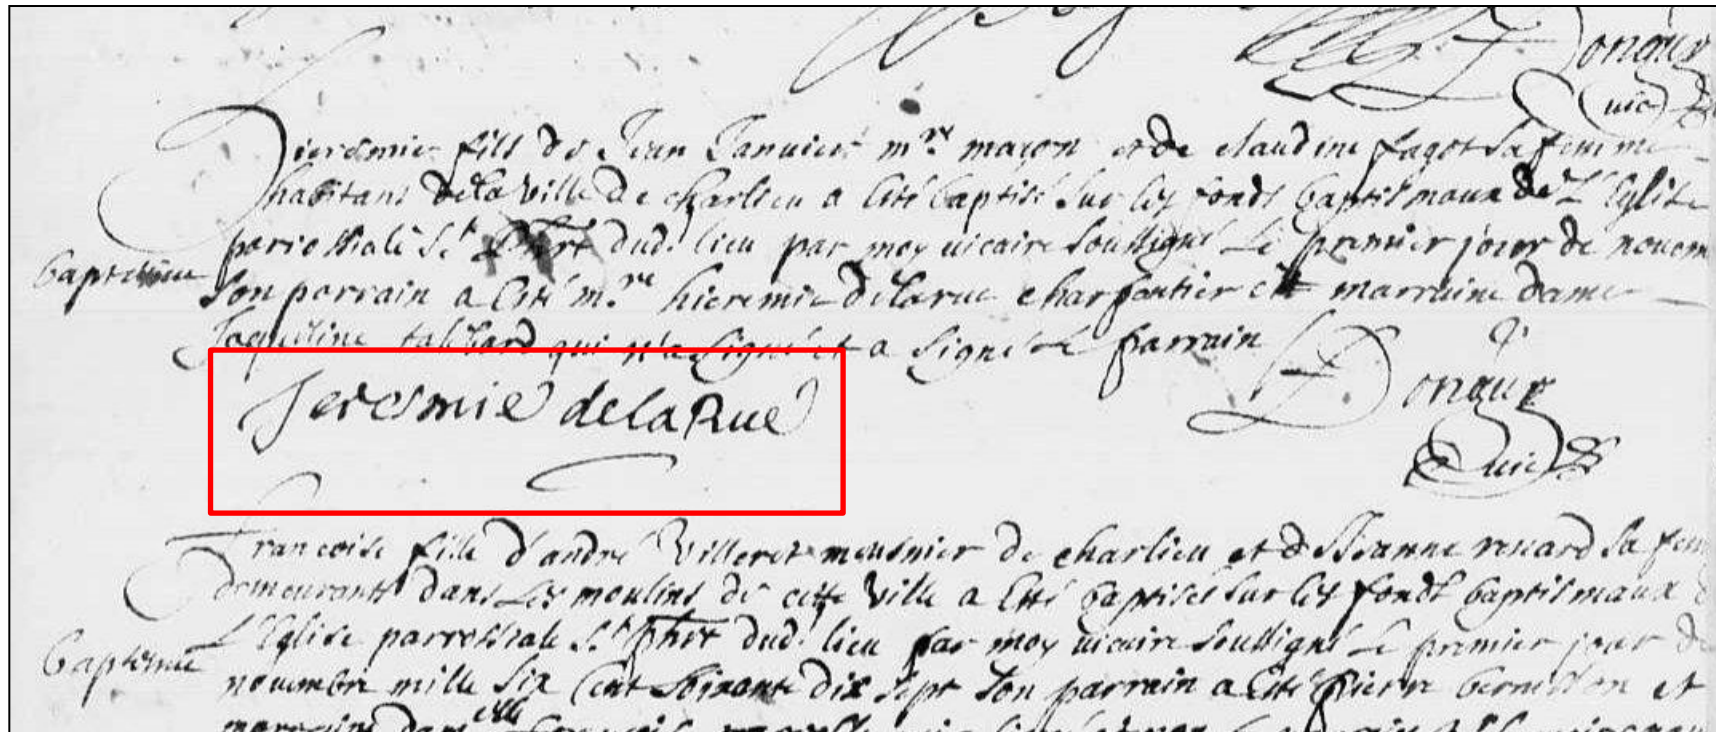 Dongux
vic
hieresmie fils de Jean Januier m.re maçon et de claudine fagot sa femme
habitans de la ville de charlieu a esté baptisé sur les fonds baptismaux de L'Eglise
parrossiale S.t Phrt dud. lieu par moy uicaire soussigné Le premier jour de nouem
baptesme
son parrain a esté m.re hieremie delarue charpentier et marraine dame
Jaqueline qui n'a signé et a signé le parrain
Jeresmie delaRue
Dongux
vic
francoise fille d'andré Villeret meusnier de charlieu et de Jeanne renard sa fem
demeurants dans Les moulins de cette ville a esté baptisée sur les fonds baptismaux d
L'Eglise parrossiale S.t Phrt dud. lieu par moy uicaire soussigné Le premier jour de
baptesme
nouembre mille six cent soixante dix sept son parrain a esté pierre et
marraine dam.elle